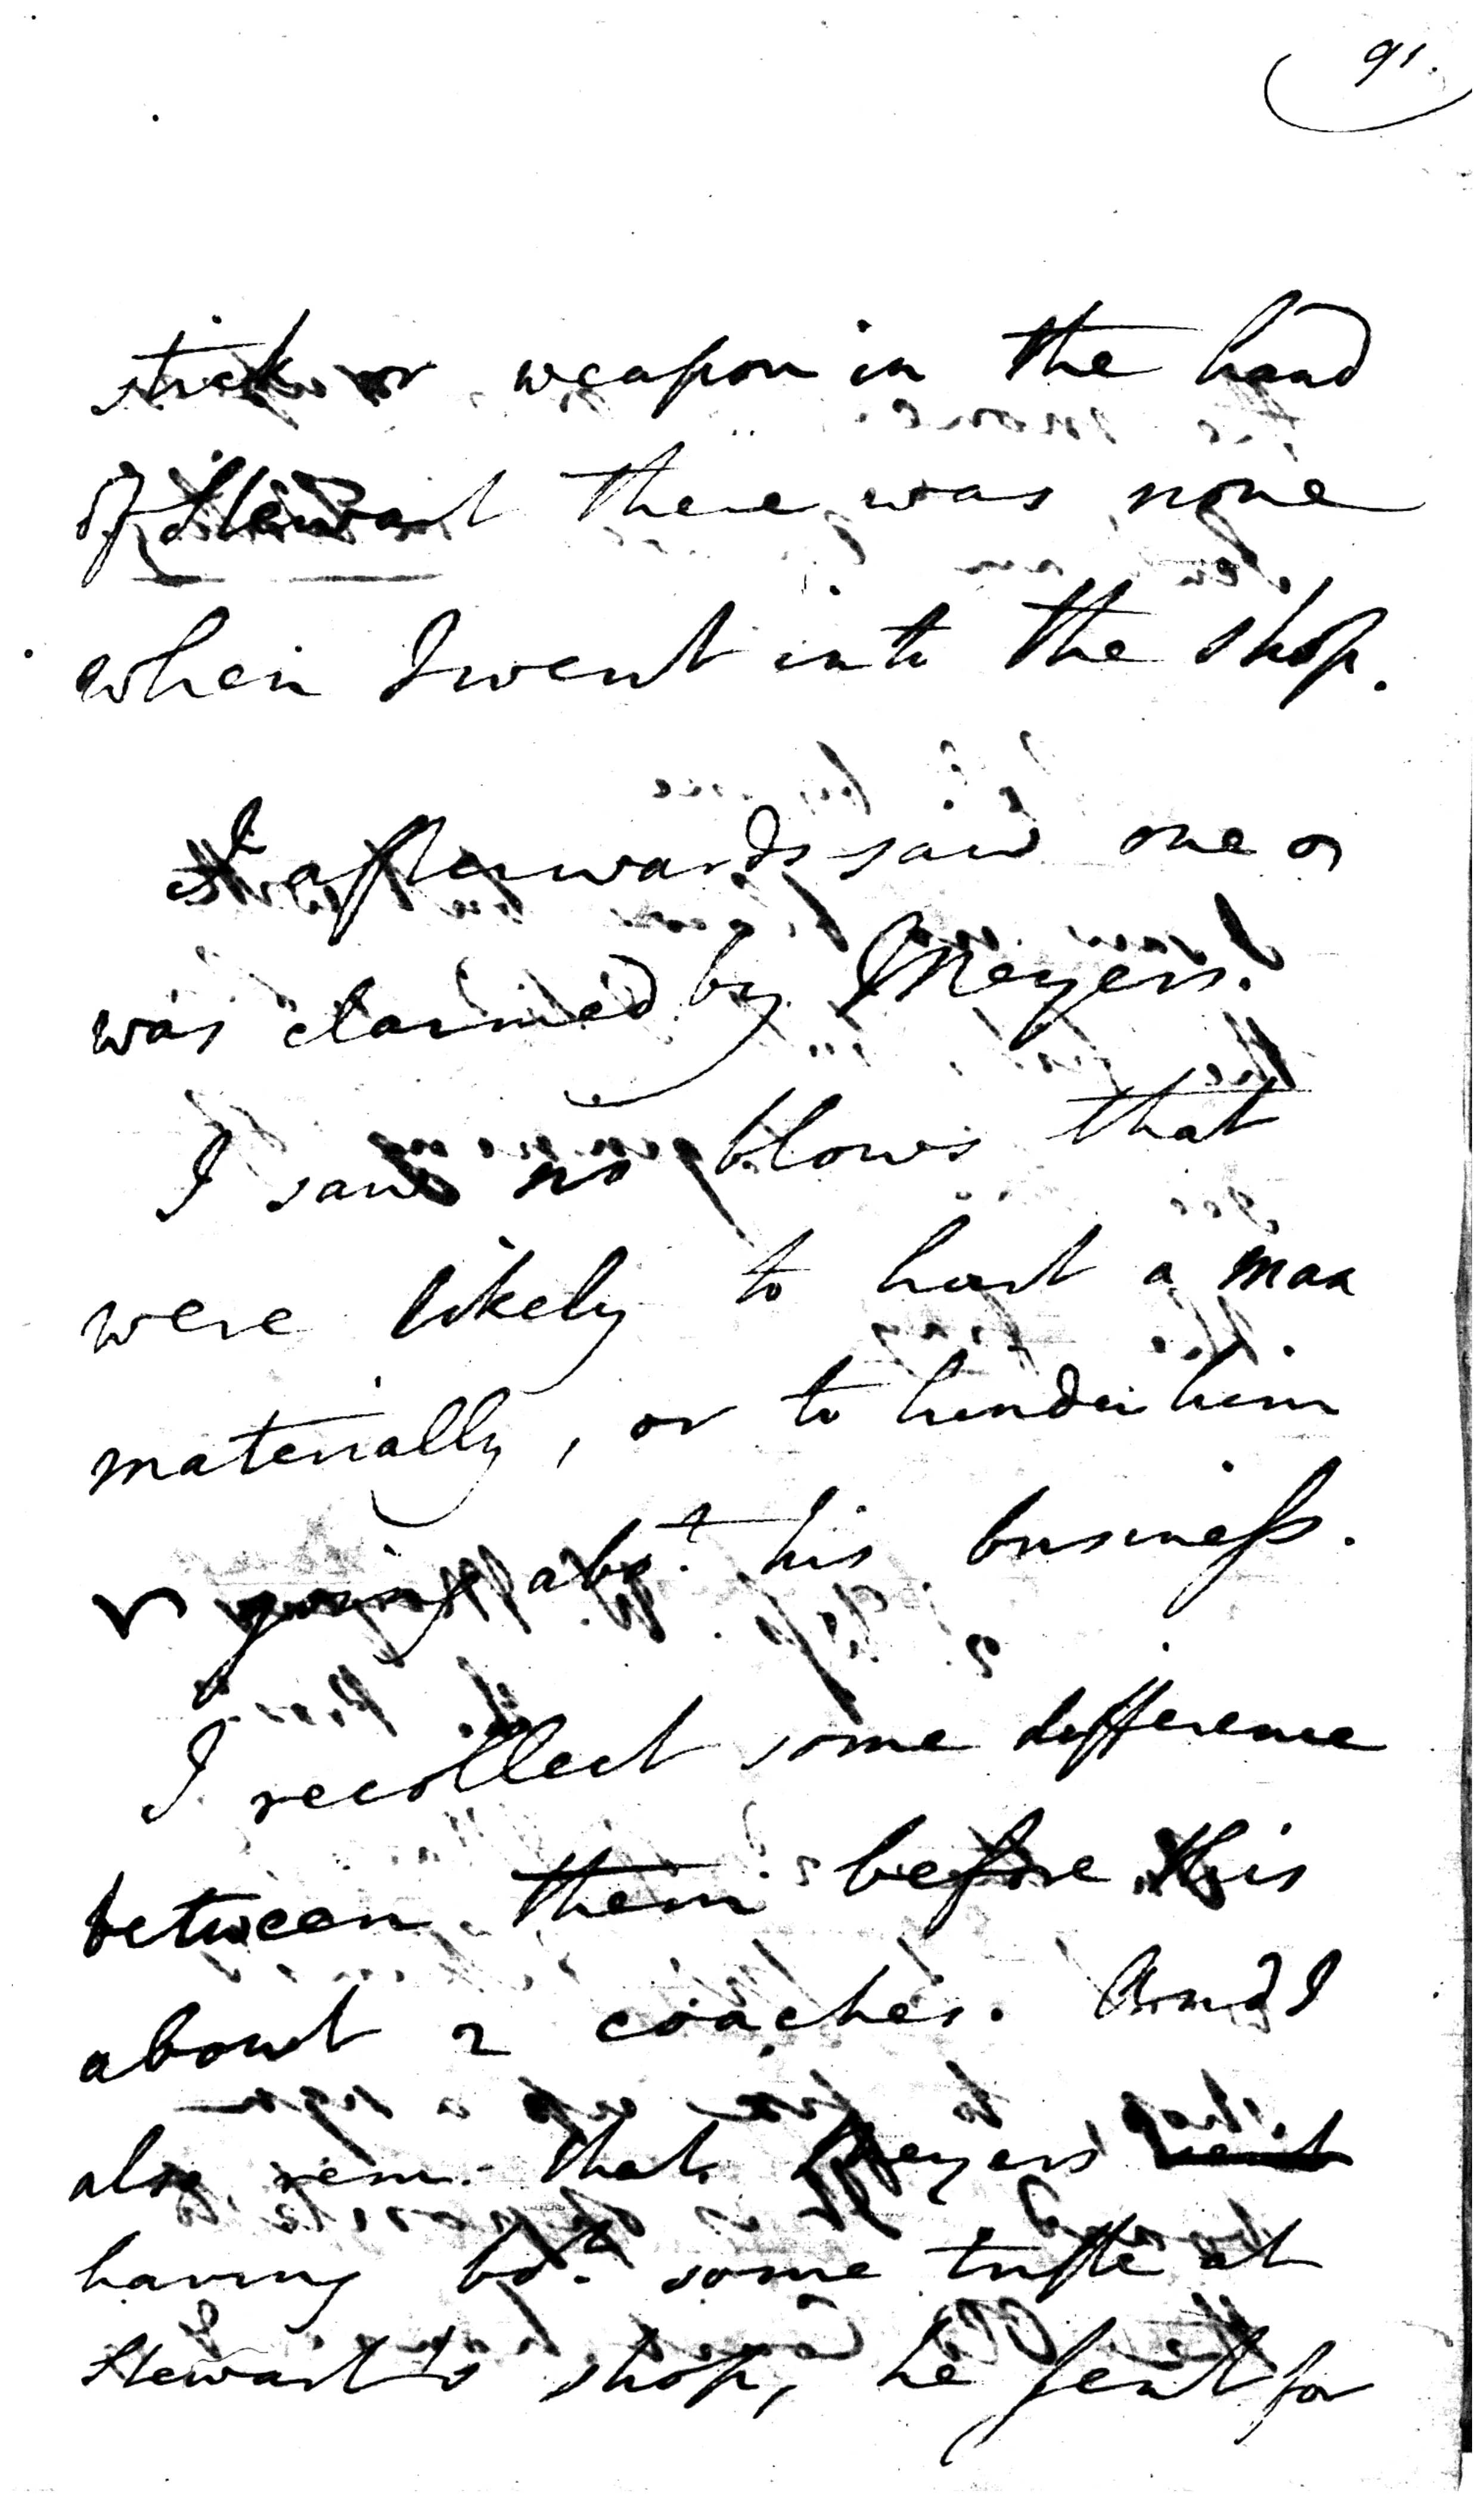 91.
stick or weapon in the hand
of Stewart there was none
when I went into the shop.
I afterwards saw one or
was claimed by Meyers.
I saw no blows that
were likely to hurt a man
materially, or to hinder him
going abot. his business.
I recollect some difference
between them before this
about 2 coaches. And I
also rem. that Meyers
having bot. some trifle at
Stewart's shop, he sent for